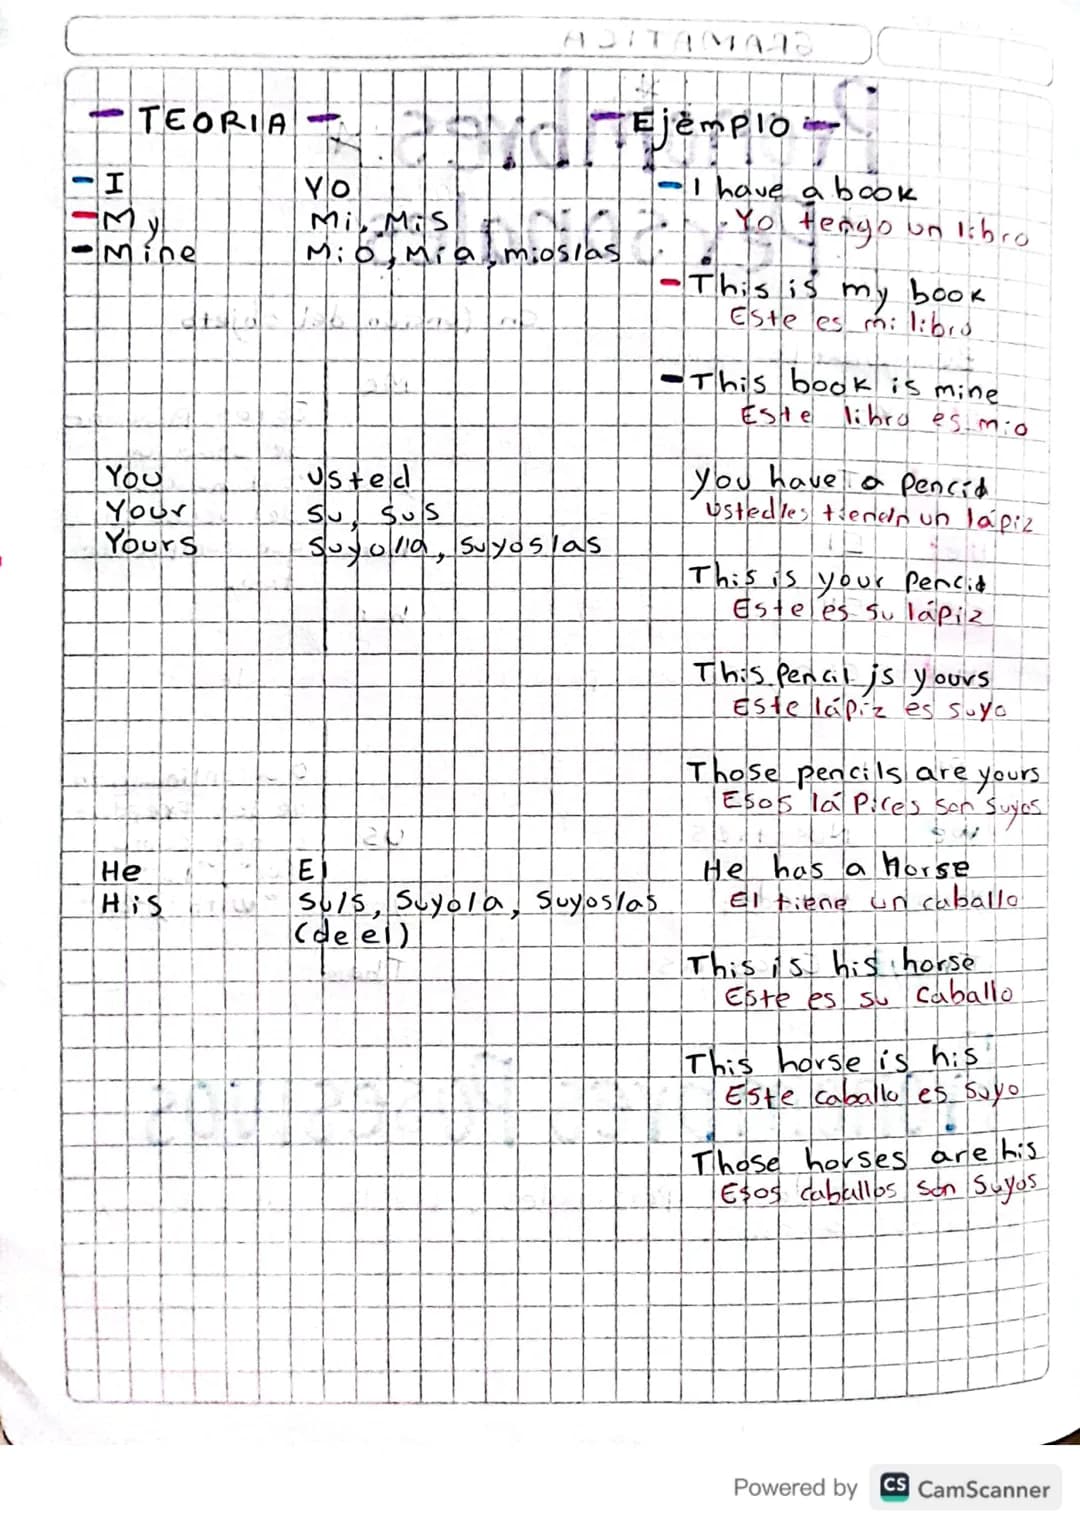 - TEORIA -
- Ejemplo -
- I YO
- My Mi, Mis
- Mine Mio, Mia, mios/as
- I have a book
Yo tengo un libro
- This is my book
Este es mi libro
- This book is mine
Este libro es mio
You Usted
Your Su, Sus
Yours Suyo/la, Suyos/as
you have a pencil
Usted/es tienen un lápiz
This is your pencil
Este es su lápiz
This pencil is yours
Este lápiz es suyo
Those pencils are yours
Esos lápices son suyos
He El
His Su/s, Suyo/a, Suyos/as
(de el)
He has a horse
El tiene un caballo
This is his horse
Este es su caballo
This horse is his
Este caballo es suyo
Those horses are his
Esos caballos son Suyos
Powered by CS CamScanner